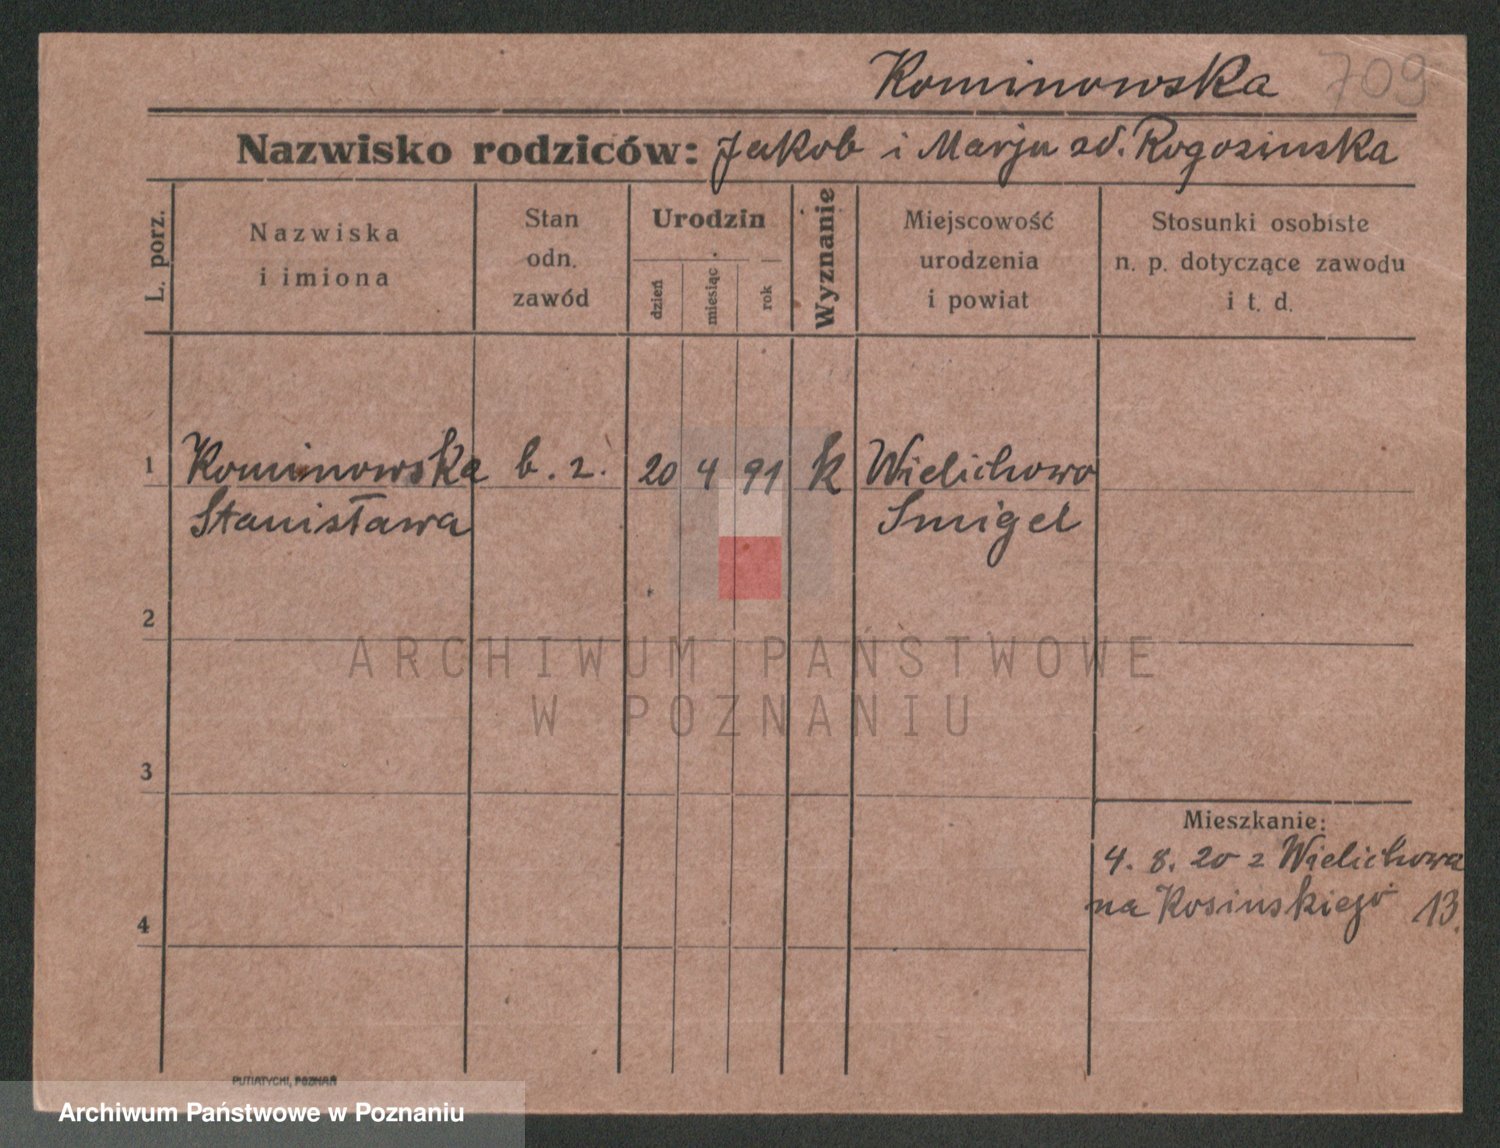 Kominowska 709
Nazwisko rodziców: Jakób i Marja zd. Rogozinska
L. porz.
Nazwiska
i imiona
Stan
odn.
zawód
Urodzin
dzień
miesiąc
rok
Wyznanie
Miejscowość
urodzenia
i powiat
Stosunki osobiste
n. p. dotyczące zawodu
i t. d.
1 Kominowska b. z. 20 4 91 k Wielichowo
Stanisława Smigel
2
ARCHIWUM PAŃSTWOWE
W POZNANIU
3
Mieszkanie:
4. 8. 20 z Wielichowa
na Kosinskiego 13.
4
PUTIATYCKI, POZNAŃ
Archiwum Państwowe w Poznaniu